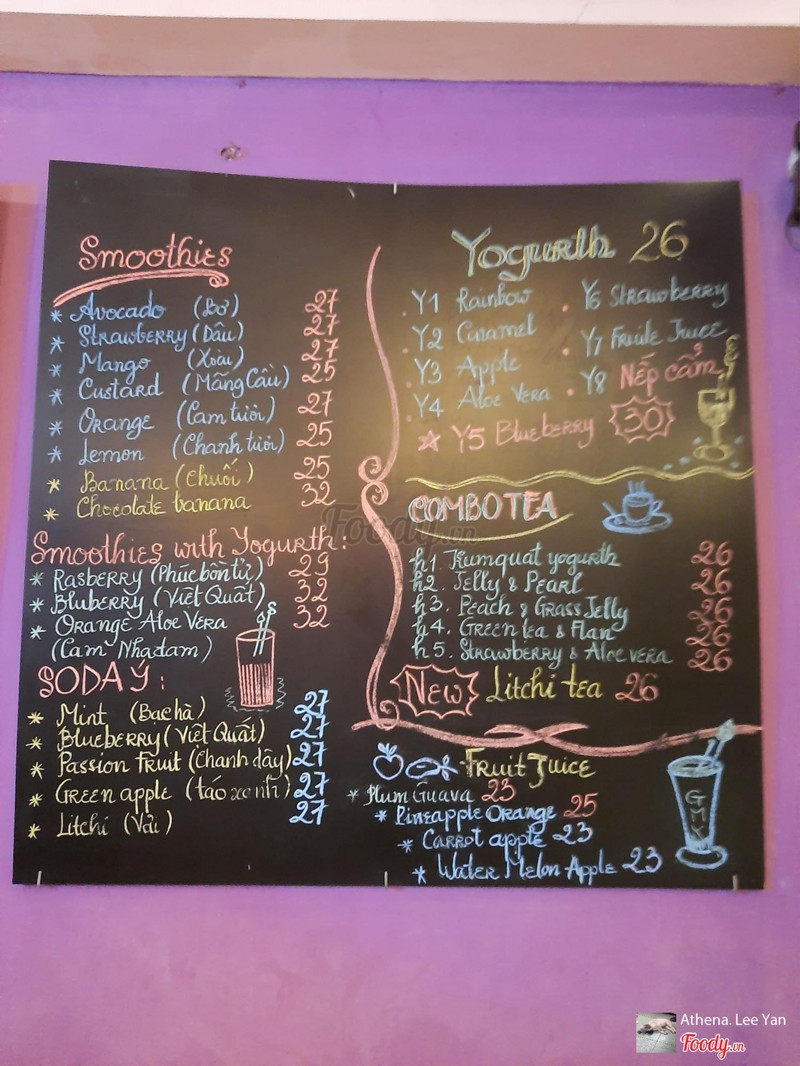 Smoothies
* Avocado (Bơ) 27
* Strawberry (Dâu) 27
* Mango (Xoài) 27
* Custard (Mãng Cầu) 25
* Orange (Cam tươi) 27
* Lemon (Chanh tươi) 25
* Banana (Chuối) 25
* Chocolate banana 32
Smoothies with Yogurth:
* Rasberry (Phúc bồn tử) 29
* Bluberry (Việt Quất) 32
* Orange Aloe Vera 32
(Cam Nha đam)
SODA Ý:
* Mint (Bạc hà) 27
* Blueberry (Việt Quất) 27
* Passion Fruit (Chanh dây) 27
* Green apple (táo xanh) 27
* Litchi (Vải) 27
Yogurth 26
Y1 Rainbow
Y2 Caramel
Y3 Apple
Y4 Aloe Vera
Y5 Blueberry 30
Y6 Strawberry
Y7 Fruite Juice
Y8 Nếp cẩm
COMBO TEA
h1. Kumquat yogurth 26
h2. Jelly & Pearl 26
h3. Peach & Grass Jelly 26
h4. Green tea & Flan 26
h5. Strawberry & Aloe vera 26
New Litchi tea 26
Fruit Juice
* Plum Guava 23
* Pineapple Orange 25
* Carrot apple 23
* Water Melon Apple 23
GMK
Foody.vn
Athena. Lee Yan
Foody.vn